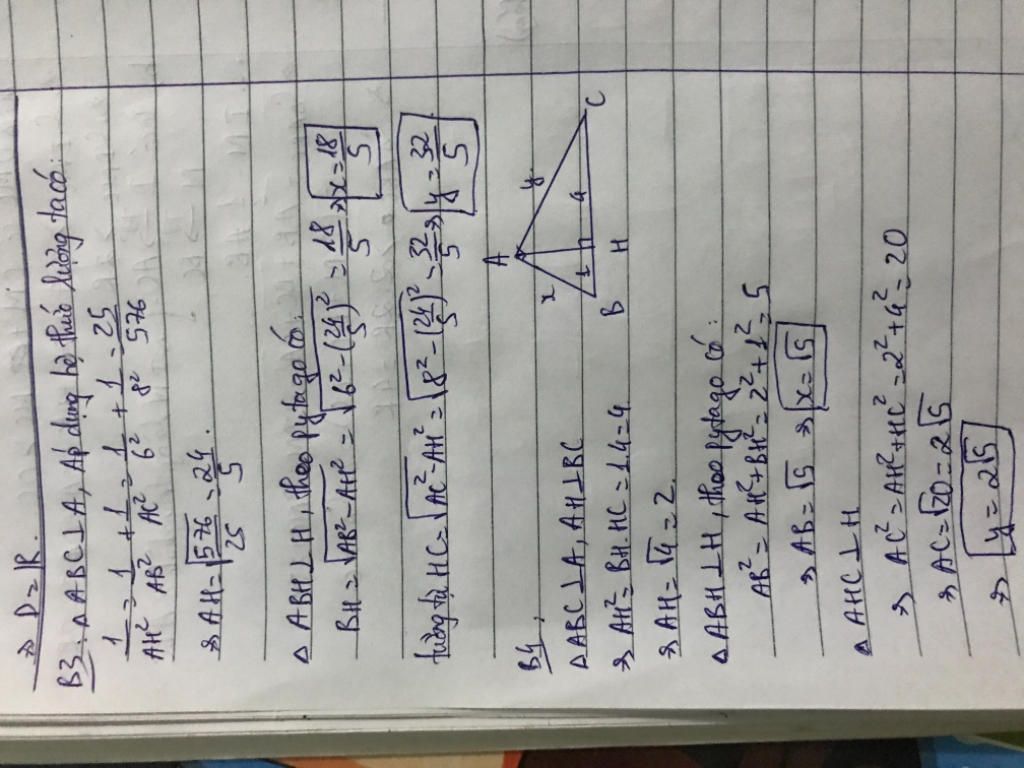 ⇒ D = ℝ.
B3: △ABC ⊥ A, Áp dụng hệ thức lượng ta có:
1/AH² = 1/AB² + 1/AC² = 1/6² + 1/8² = 25/576
⇒ AH = √(576/25) = 24/5.
△ ABH ⊥ H, theo pytago có:
BH = √(AB² - AH²) = √(6² - (24/5)²) = 18/5 ⇒ x = 18/5
tương tự: HC = √(AC² - AH²) = √(8² - (24/5)²) = 32/5 ⇒ y = 32/5
B4:
A
x
y
1
4
B
H
C
△ABC ⊥ A, AH ⊥ BC
⇒ AH² = BH.HC = 1.4 = 4
⇒ AH = √4 = 2.
△ABH ⊥ H, theo pytago có:
AB² = AH² + BH² = 2² + 1² = 5
⇒ AB = √5 ⇒ x = √5
△ AHC ⊥ H
⇒ AC² = AH² + HC² = 2² + 4² = 20
⇒ AC = √20 = 2√5
⇒ y = 2√5